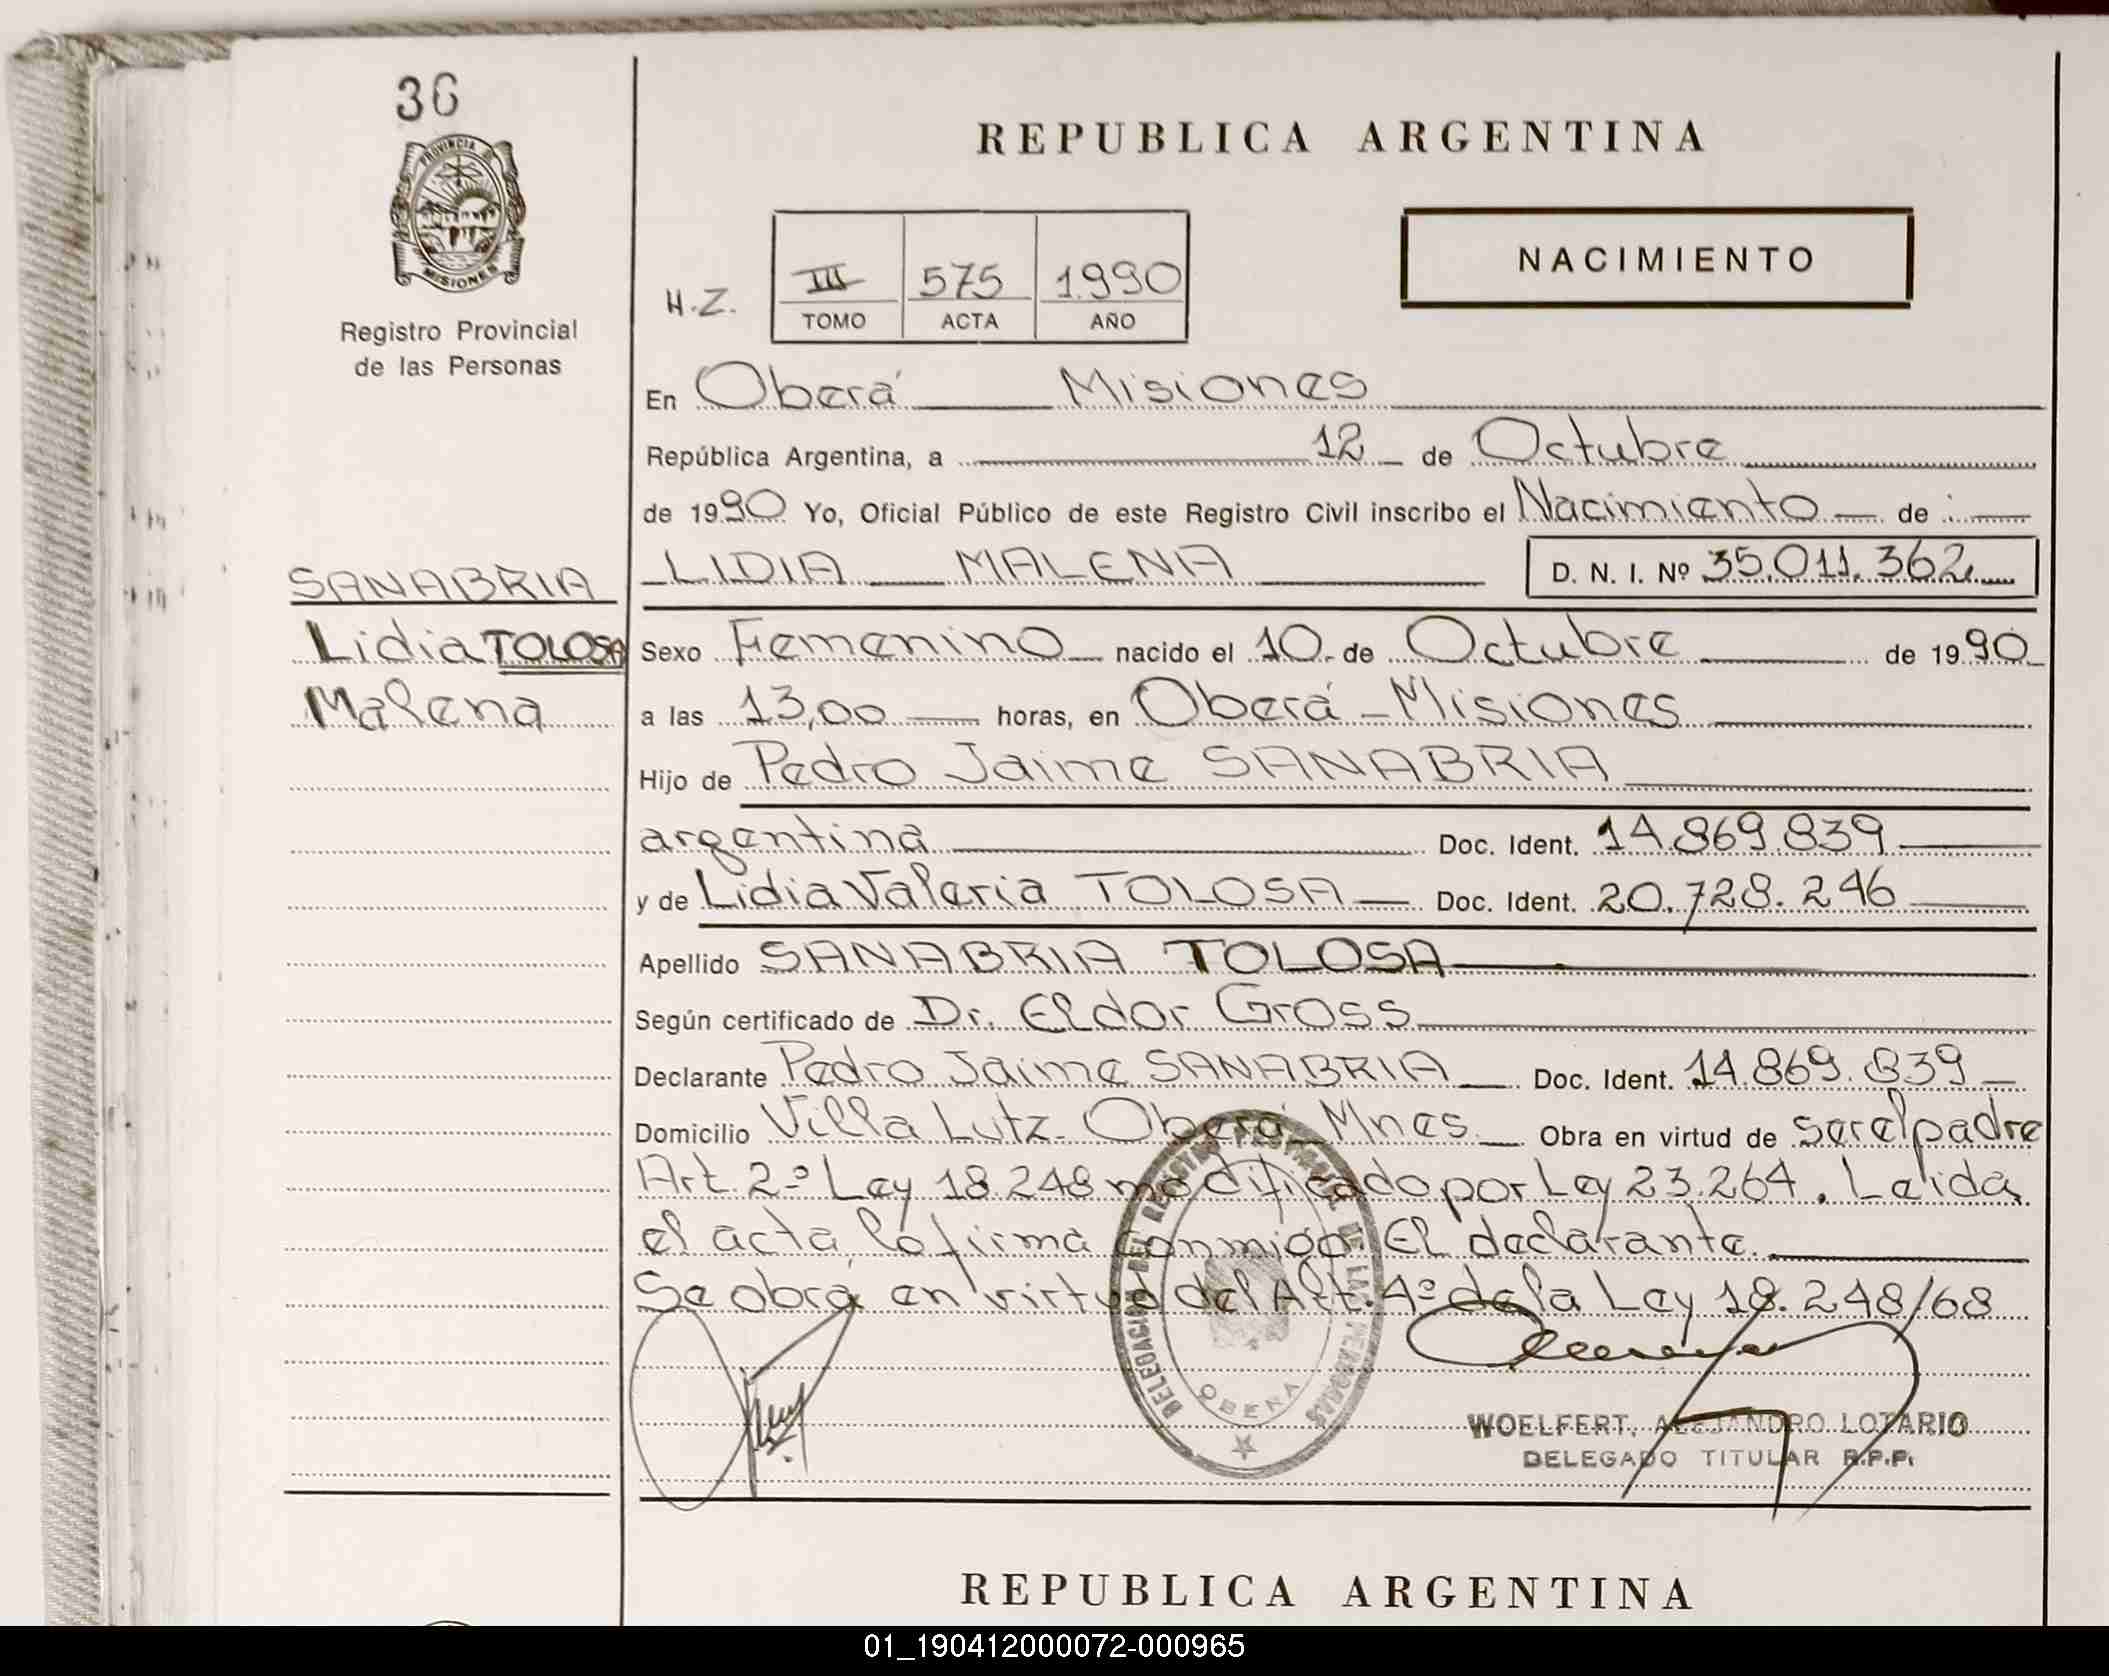 36
PROVINCIA DE
MISIONES
Registro Provincial
de las Personas
REPUBLICA ARGENTINA
NACIMIENTO
H.Z.
III 575 1.990
TOMO ACTA AÑO
En Oberá Misiones
República Argentina, a 12 de Octubre
de 1990 Yo, Oficial Público de este Registro Civil inscribo el Nacimiento de :
LIDIA MALENA D. N. I. Nº 35.011.362
SANABRIA
Lidia TOLOSA
Malena
Sexo Femenino nacido el 10 de Octubre de 1990
a las 13,00 horas, en Oberá - Misiones
Hijo de Pedro Jaime SANABRIA
argentina Doc. Ident. 14.869.839
y de Lidia Valeria TOLOSA Doc. Ident. 20.728.246
Apellido SANABRIA TOLOSA
Según certificado de Dr. Eldor Gross
Declarante Pedro Jaime SANABRIA Doc. Ident. 14.869.839
Domicilio Villa Lutz - Oberá - Mnes Obra en virtud de ser el padre
Art. 2º Ley 18.248 modificado por Ley 23.264. Leida
el acta lo firma conmigo El declarante
Se obra en virtud del Art. 4º de la Ley 18.248/68
DELEGACION DEL REGISTRO PROVINCIAL DE LAS PERSONAS
OBERA
WOELFERT, ALEJANDRO LOTARIO
DELEGADO TITULAR R.P.P.
REPUBLICA ARGENTINA
01_190412000072-000965